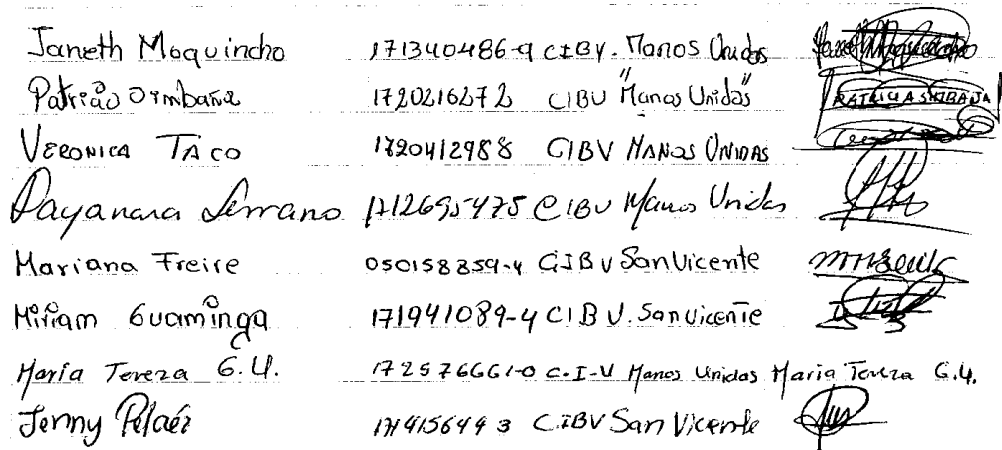 Janeth Moquincho 171340486-9 CIBV. Manos Unidas
1720216272 CIBV "Manos Unidas"
VERONICA TACO 1720412988 CIBV MANOS UNIDAS
Dayanara Serrano 1712695475 CIBV Manos Unidas
Mariana Freire 050158859-4 CIBV San Vicente
Miriam Guaminga 171941089-4 CIBV. San Vicente
María Tereza G.U. 172576661-0 C.I.V Manos Unidas Maria Tereza G.U.
Jenny Peláez 171415644 3 CIBV San Vicente